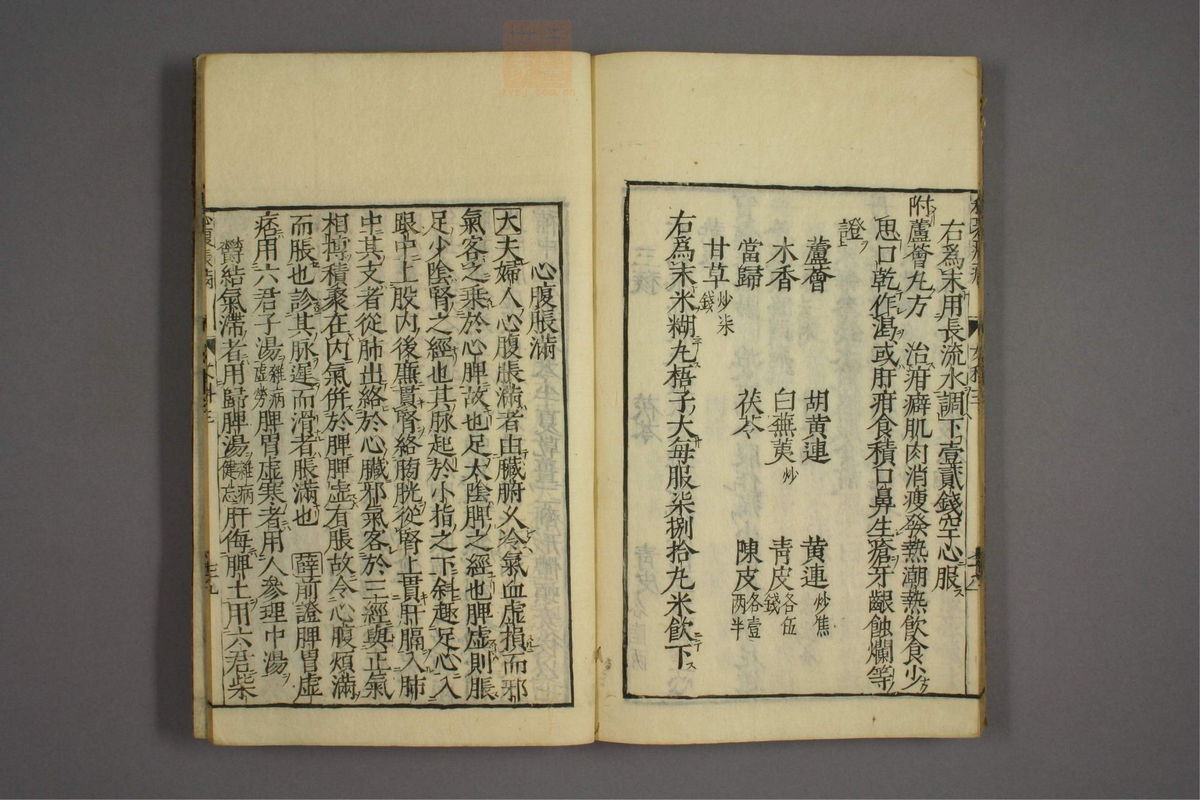 右爲末用長流水調下壹貳錢空心服
附蘆薈丸方 治疳癖肌肉消瘦發熱潮熱飲食少
思口乾作渴或肝疳食積口鼻生瘡牙齦蝕爛等
證
蘆薈 胡黃連 黃連炒焦
木香 白蕪荑炒 青皮各伍錢
當歸 茯苓 陳皮各壹兩半
甘草炒柒錢
右爲末米糊丸梧子大每服柒捌拾丸米飲下
心腹脹滿
大夫婦人心腹脹滿者由臟腑久冷氣血虛損而邪
氣客之乘於心脾故也足太陰脾之經也脾虛則脹
足少陰腎之經也其脉起於小指之下斜趣足心入
跟中上股内後廉貫腎絡膀胱從腎上貫肝膈入肺
中其支者從肺出絡於心臟邪氣客於三經與正氣
相搏積聚在内氣併於脾脾虛有脹故令心腹煩滿
而脹也診其脉遲而滑者脹滿也 薛前證脾胃虛
痞用六君子湯雜病虛勞脾胃虛寒者用人參理中湯
鬱結氣滯者用歸脾湯雜病健忘肝侮脾土用六君柴